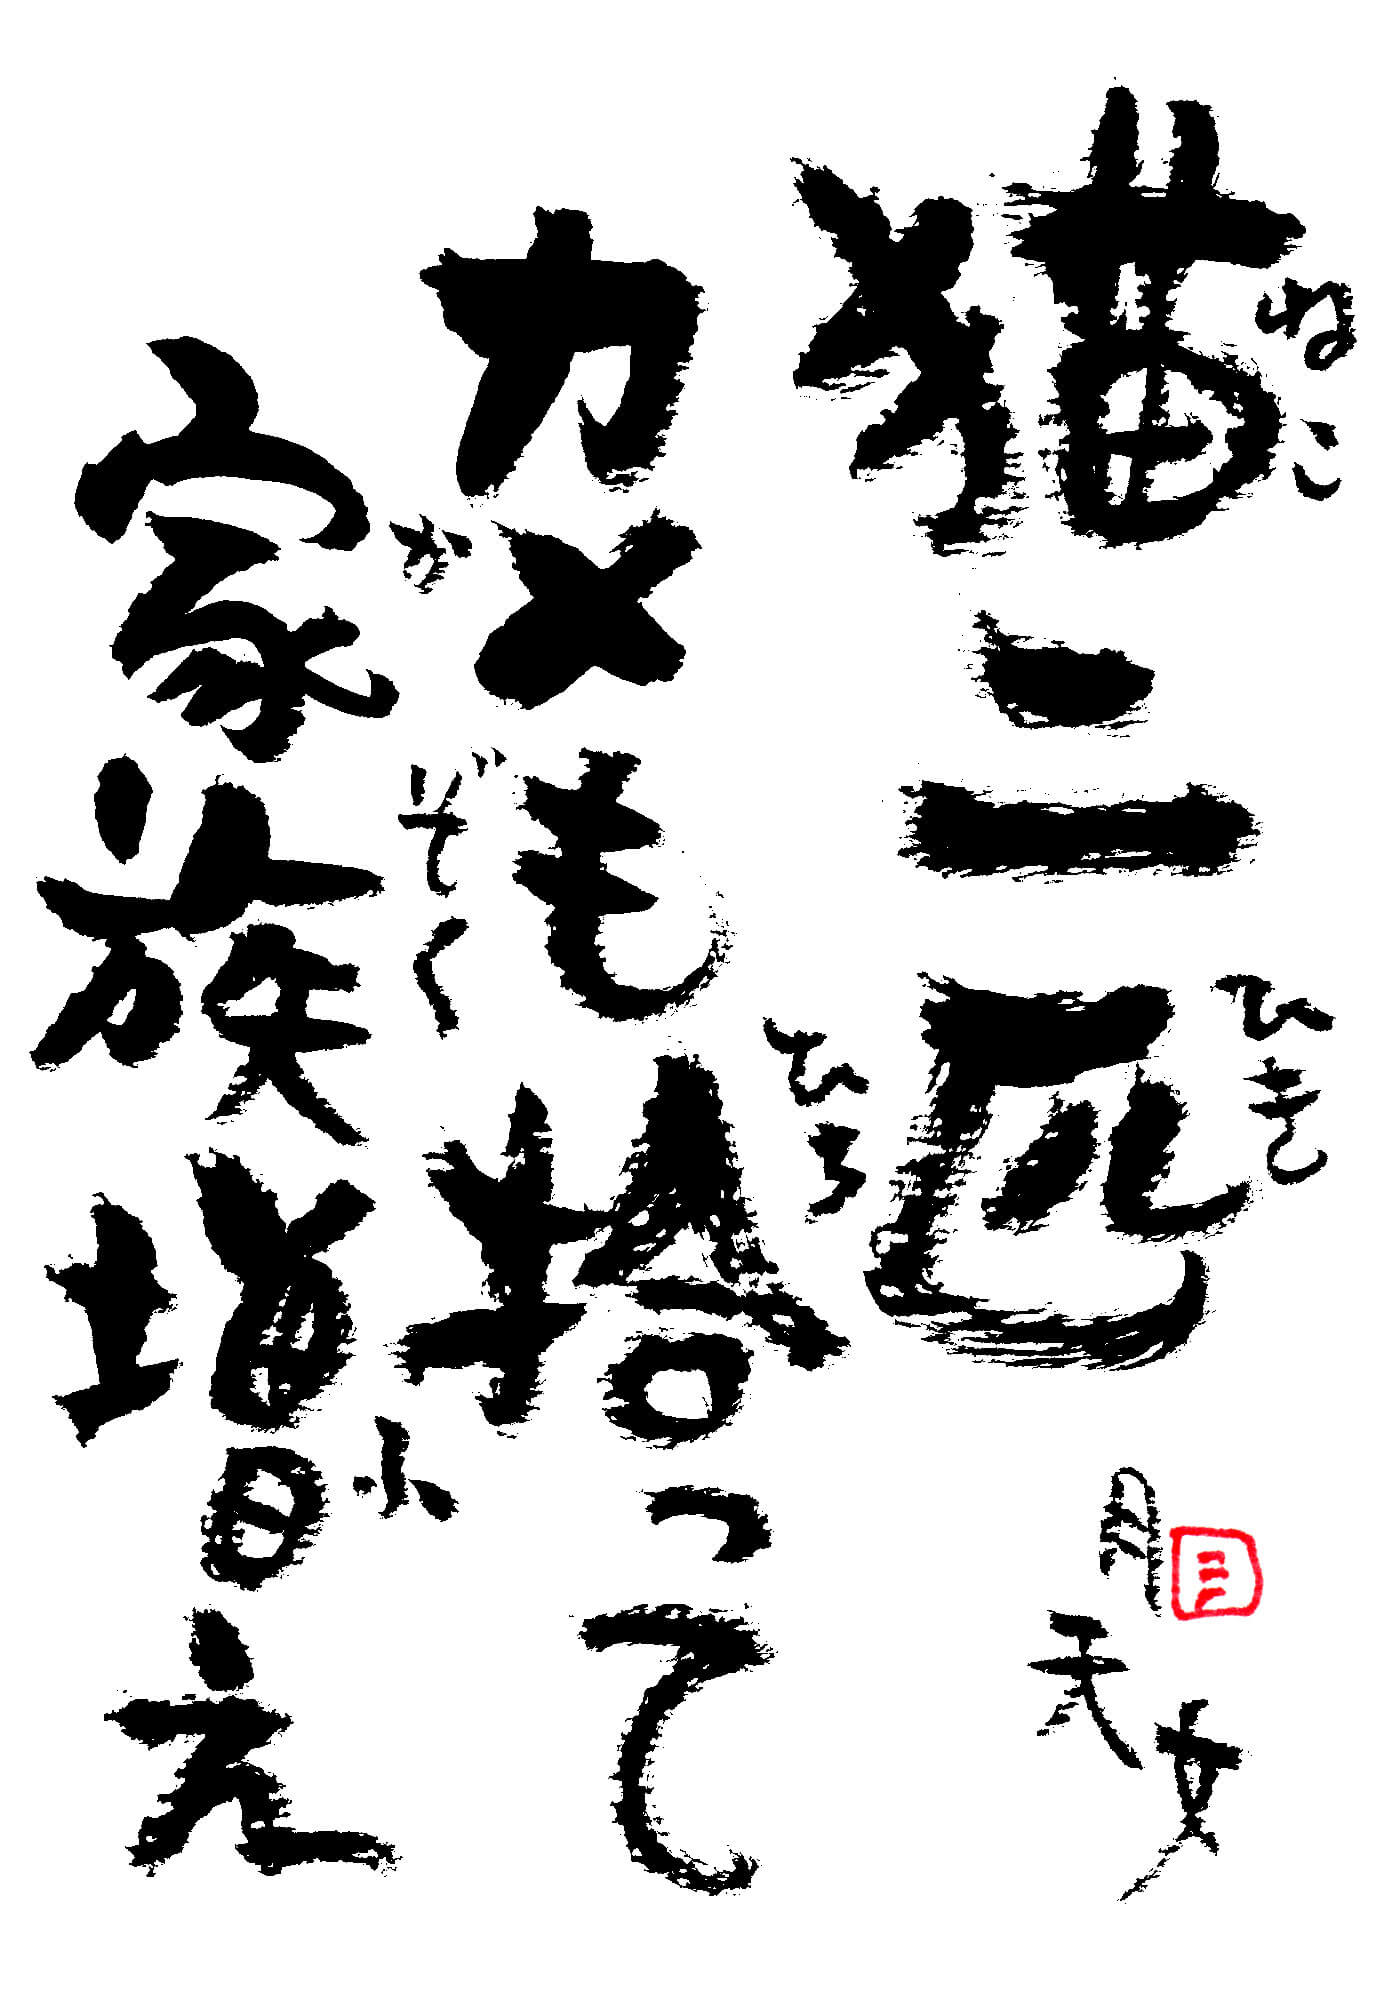 猫二匹
ねこ
ひき
カメも拾って
ひろ
家族増え
かぞく
ふ
月天女
三